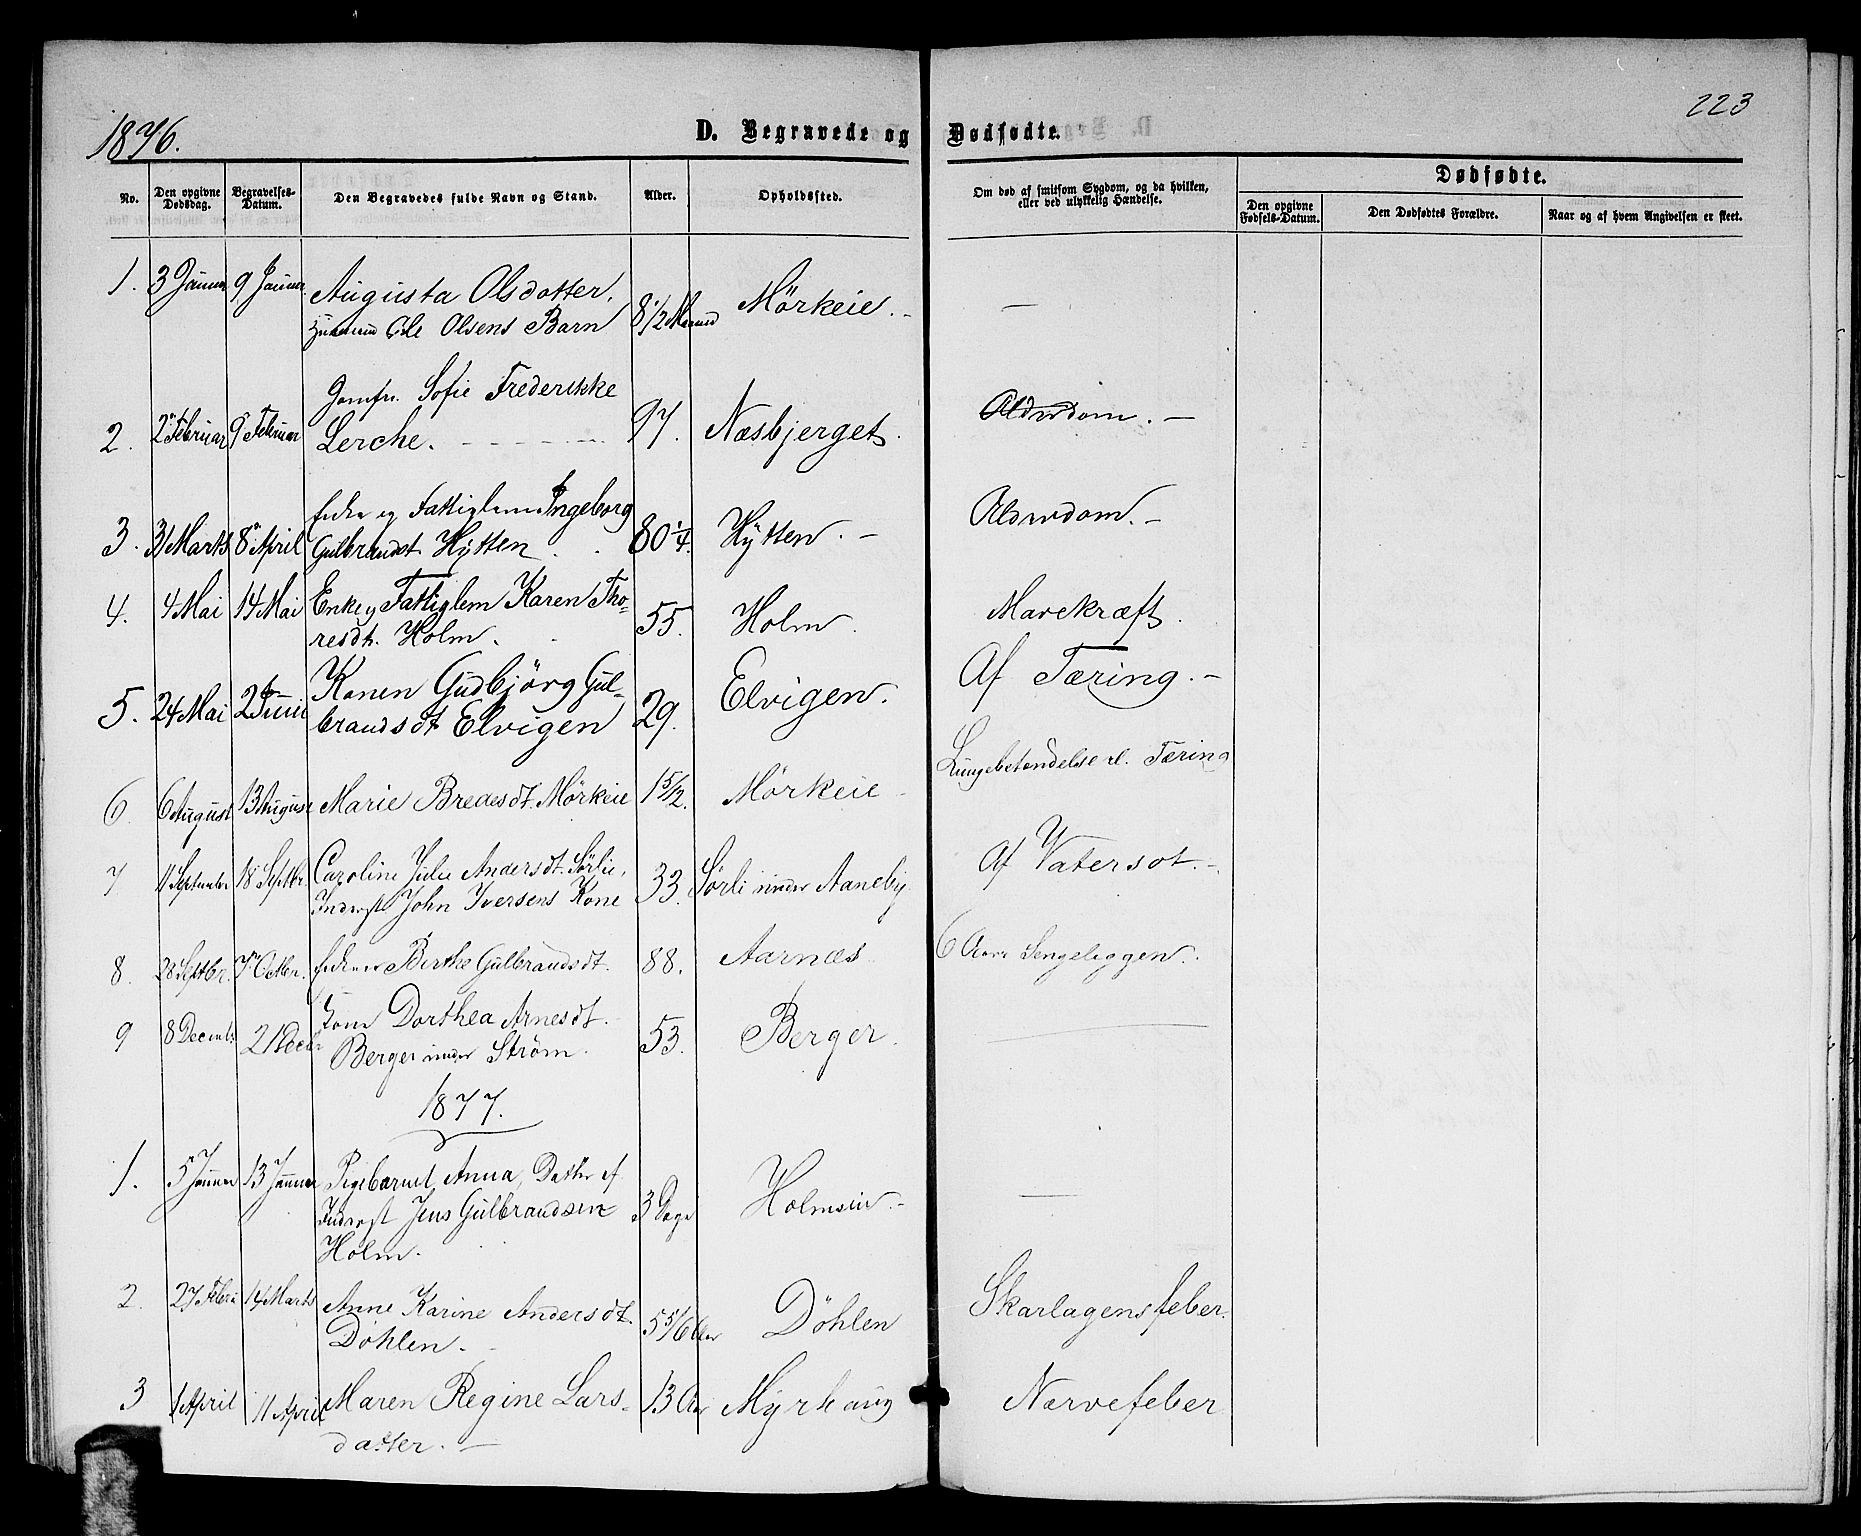 1876.
D. Begravede og Dødfødte.
223
No.
Den opgivne Dødsdag.
Begravelses-Datum.
Den Begravedes fulde Navn og Stand.
Alder.
Opholdssted.
Om død af smitsom Sygdom, og da hvilken, eller ved ulykkelig Hændelse.
Dødfødte.
Den opgivne Fødsels-Datum.
Den Dødfødtes Forældre.
Naar og af hvem Angivelsen er skeet.
1. 3 Januar 9 Januar Augusta Olsdatter, 8 1/2 Maaned Mörkeie. –
Ole Olsens Barn
2. 2 Februar 9 Februar Jomfr. Sofie Frederikke 97. Næsbjerget. Alderdom. –
Lerche.
3. 31 Marts 8 April Enke og Fattiglem Ingeborg 80 1/4. Hÿtten. – Alderdom. –
Gulbrandsdt. Hÿtten
4. 4 Mai 14 Mai Enke og Fattiglem Karen Tho- 55. Holm. Mavekræft.
resdt. Holm.
5. 24 Mai 2 Juni Konen Gudbjörg Gul- 29. Elvigen. Af Tæring. –
brandsdt Elvigen
6. 6 August 13 August Marie Bredesdt. Mörkeie 15/2. Mörkeie Lungebetændelse el. Tæring
7 11 September 18 Septbr. Caroline Julie Andersdt. Sörlie, 33. Sörli under Aaneby Af Vatersot. –
Inderst John Iversens Kone
8. 28 Septbr. 7 Octbr. Enken Berthe Gulbrandsdt. 88. Aarnæs 6 Aars Sengeliggen.
9 8 Decembr 21 Decbr Dorthea Arnesdt. 53. Berger.
Berger under Ström.
1877.
1. 5 Januar 13 Januar Pigebarnet Anna, Datter af 3 Dage Holmseie. – –
Inderst Jens Gulbrandsen
Holm.
2. 27 Febru 14 Marts Anne Karine Andersdt. 5 5/6 Aar Döhlen Skarlagensfeber.
Döhlen.
3 1 April 11 April Maren Regine Lars- 13 Aar Myrhaug Nervefeber
datter. –